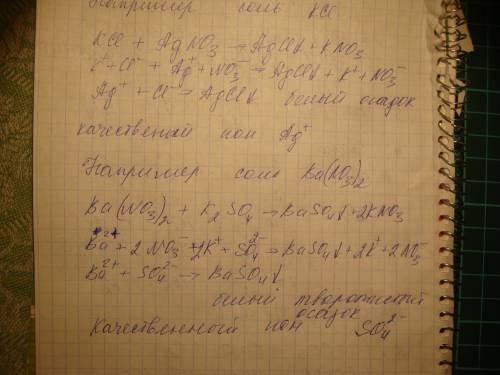 Например соль KCl
KCl + AgNO₃ → AgCl↓ + KNO₃
K⁺+Cl⁻ + Ag⁺+NO₃⁻ = AgCl↓ + K⁺+NO₃⁻
Ag⁺ + Cl⁻ = AgCl↓ белый осадок
качественый ион Ag⁺
Например соль Ba(NO₃)₂
Ba(NO₃)₂ + K₂SO₄ → BaSO₄↓+2KNO₃
Ba²⁺+2NO₃⁻+2K⁺+SO₄²⁻ → BaSO₄↓+2K⁺+2NO₃⁻
Ba²⁺ + SO₄²⁻ → BaSO₄↓
белый творожистый
осадок
Качественный ион SO₄²⁻